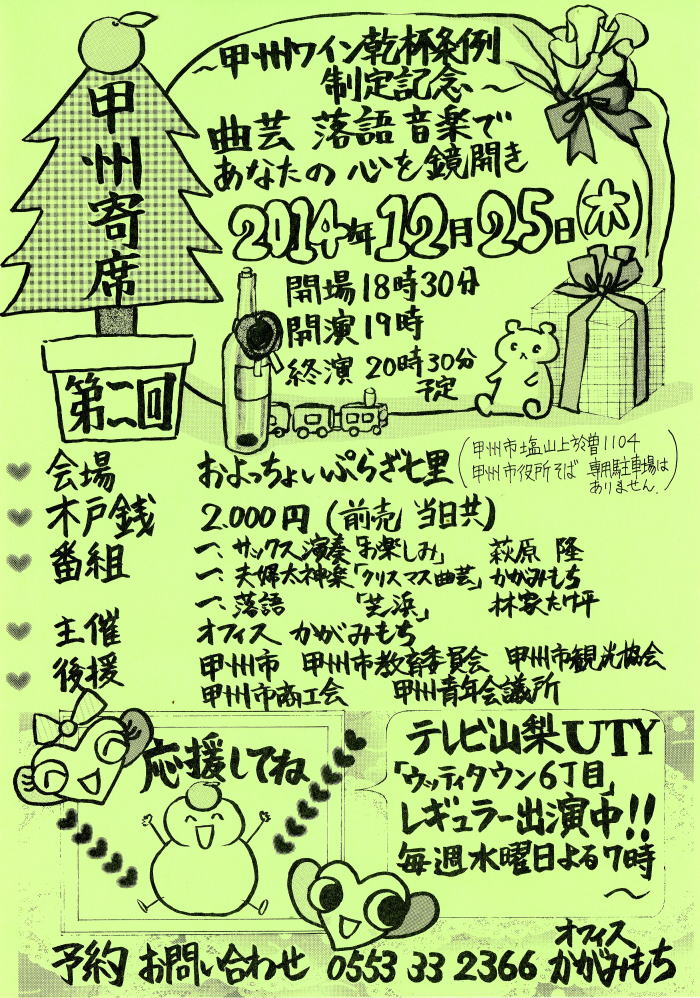 甲州寄席
第二回
～甲州ワイン乾杯条例
制定記念～
曲芸 落語 音楽で
あなたの心を鏡開き
2014年12月25日(木)
開場18時30分
開演19時
終演 20時30分
予定
会場 およっちょいぷらざ七里
(甲州市塩山上於曽1104
甲州市役所そば 専用駐車場は
ありません。)
木戸銭 2.000円 (前売 当日共)
番組 一、サックス演奏「お楽しみ」 萩原 隆
一、夫婦太神楽「クリスマス曲芸」かがみもち
一、落語 「芝浜」 林家たけ平
主催 オフィス かがみもち
後援 甲州市 甲州市教育委員会 甲州市観光協会
甲州市商工会 甲州青年会議所
応援してね
テレビ山梨UTY
「ウッティタウン6丁目」
レギュラー出演中!!
毎週水曜日よる7時
～
予約 お問い合わせ 0553 33 2366 オフィス
かがみもち